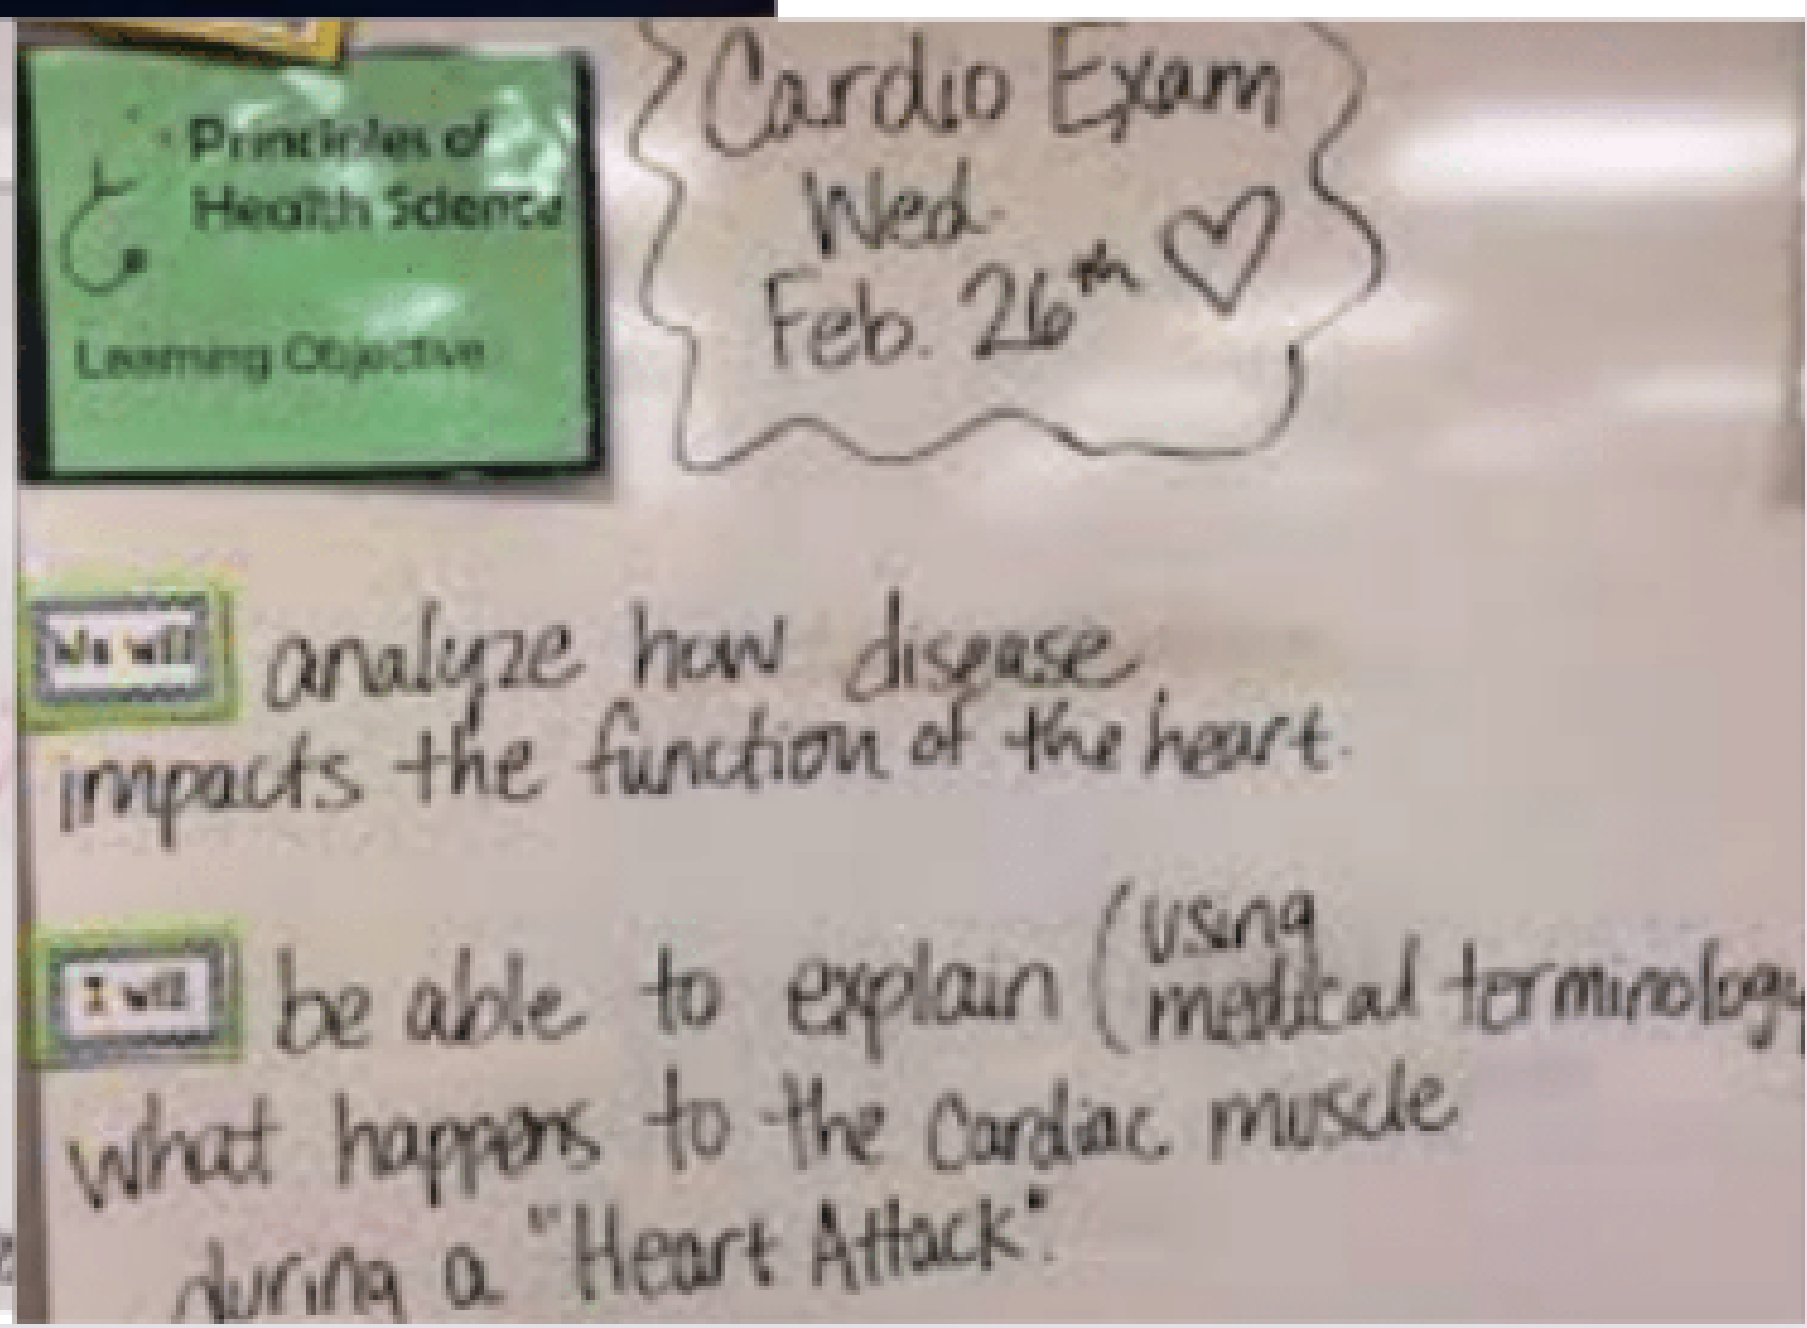 Principles of
Health Science
Learning Objective
Cardio Exam
Wed.
Feb. 26th
We will analyze how disease
impacts the function of the heart.
I will be able to explain (using
medical terminology
what happens to the cardiac muscle
during a "Heart Attack".